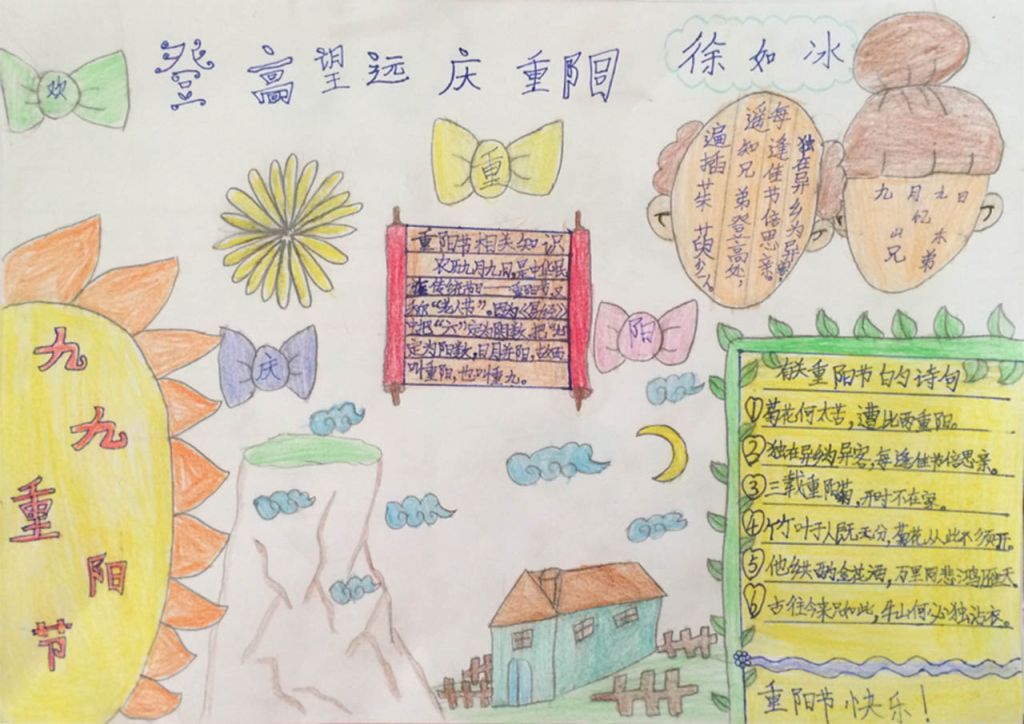 登高望远庆重阳
徐如冰
欢
重
庆
阳
独在异乡为异客
每逢佳节倍思亲
遥知兄弟登高处
遍插茱萸少一人
九月九日
忆
山东
兄弟
重阳节相关知识
农历九月九日,是中华民
族传统节日——重阳节,又
称“老人节”。因为《易经》
中把“六”定为阴数,把“九”
定为阳数,日月并阳,
叫重阳,也叫重九。
九
九
重
阳
节
有关重阳节的诗句
①菊花何太苦,遭此两重阳。
②独在异乡为异客,每逢佳节倍思亲。
③三载重阳菊,开时不在家。
④竹叶于人既无分,菊花从此不须开。
⑤他乡共酌金花酒,万里同悲鸿雁天。
⑥古往今来只如此,牛山何必独沾衣。
重阳节快乐!